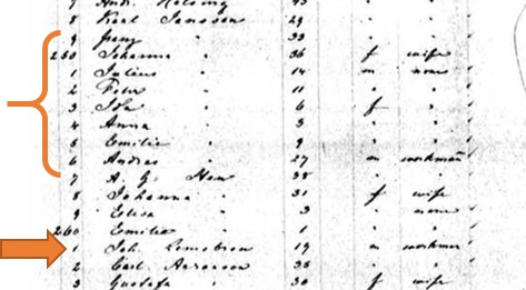 7 Andr. Helsing " 43
8 Karl Janssen " 29
9 " 33
250 Johanna " 36 f wife
1 Julius " 14 m none
2 Peter " 11 " "
3 Ida " 6 f "
4 Anna " 3 " "
5 Emilie " 9 " "
6 Andras " 27 m workman
7 A. G. 38 " "
8 Johanna " 31 f wife
9 Elisa " 3 " none
260 Emilie " 1 " "
1 Joh. 19 m workman
2 Carl 35 " "
3 Gustafa " 30 f wife